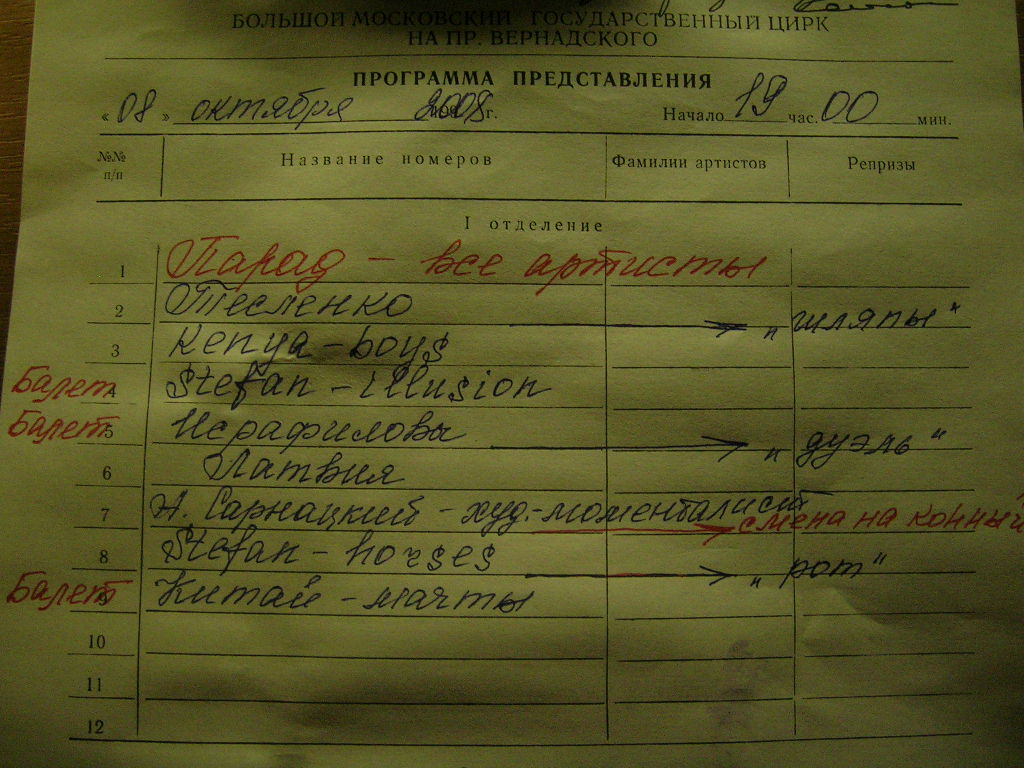 БОЛЬШОЙ МОСКОВСКИЙ ГОСУДАРСТВЕННЫЙ ЦИРК
НА ПР. ВЕРНАДСКОГО
ПРОГРАММА ПРЕДСТАВЛЕНИЯ
« 08 » октября 2008 г. Начало 19 час. 00 мин.
№№ п/п Название номеров Фамилии артистов Репризы
I отделение
1 Парад - все артисты
2 Тесленко → „шляпы"
3 Kenya - boys
Балет 4 Stefan - illusion
Балет 5 Исрафиловы → „дуэль"
6 Латвия
7 А. Сарнацкий - худ.-моменталист → смена на конный
8 Stefan - horses → „рот"
Балет 9 Китай - мачты
10
11
12